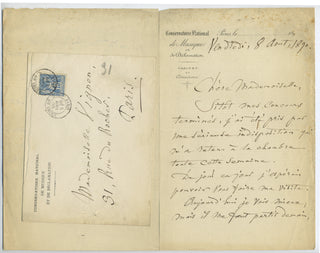 Conservatoire National
de Musique
et de Déclamation
CABINET
du Directeur
Paris, le
189
Vendredi, 8 Août 1890
Chère Mademoiselle,
Sitôt mes concours
terminés, j'ai été pris par
une sérieuse indisposition qui
m'a retenu à la chambre
toute cette semaine.
De jour en jour j'espérais
pouvoir vous faire ma visite.
Aujourd'hui je vais mieux,
mais il me faut partir demain,
31
Mademoiselle Vignon,
31, Rue du Rocher,
Paris.
CONSERVATOIRE NATIONAL
DE MUSIQUE
ET DE DÉCLAMATION